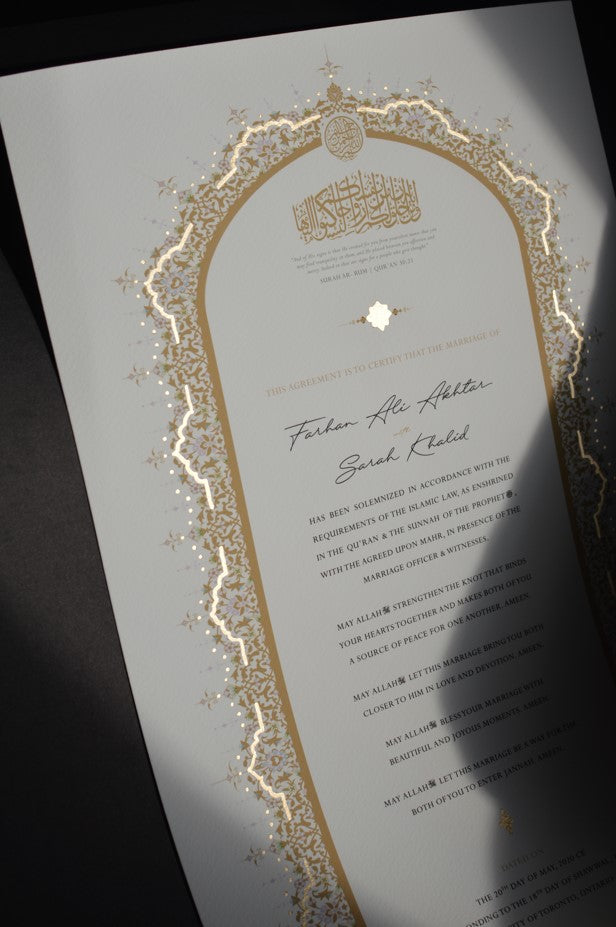 "And of His signs is that He created for you from yourselves mates that you
may find tranquility in them, and He placed between you affection and
mercy. Indeed in that are signs for a people who give thought."
SURAH AR- RUM | QUR'AN 30:21
THIS AGREEMENT IS TO CERTIFY THAT THE MARRIAGE OF
Farhan Ali Akhtar
Sarah Khalid
HAS BEEN SOLEMNIZED IN ACCORDANCE WITH THE
REQUIREMENTS OF THE ISLAMIC LAW, AS ENSHRINED
IN THE QU'RAN & THE SUNNAH OF THE PROPHET ﷺ,
WITH THE AGREED UPON MAHR, IN PRESENCE OF THE
MARRIAGE OFFICER & WITNESSES.
MAY ALLAH ﷻ STRENGTHEN THE KNOT THAT BINDS
YOUR HEARTS TOGETHER AND MAKES BOTH OF YOU
A SOURCE OF PEACE FOR ONE ANOTHER. AMEEN.
MAY ALLAH ﷻ LET THIS MARRIAGE BRING YOU BOTH
CLOSER TO HIM IN LOVE AND DEVOTION. AMEEN.
MAY ALLAH ﷻ BLESS YOUR MARRIAGE WITH
BEAUTIFUL AND JOYOUS MOMENTS. AMEEN.
MAY ALLAH ﷻ LET THIS MARRIAGE BE A WAY FOR THE
BOTH OF YOU TO ENTER JANNAH. AMEEN.
DATED ON
THE 20TH DAY OF MAY, 2020 CE
ONDING TO THE 18TH DAY OF SHAWWAL
OF TORONTO, ONTARIO